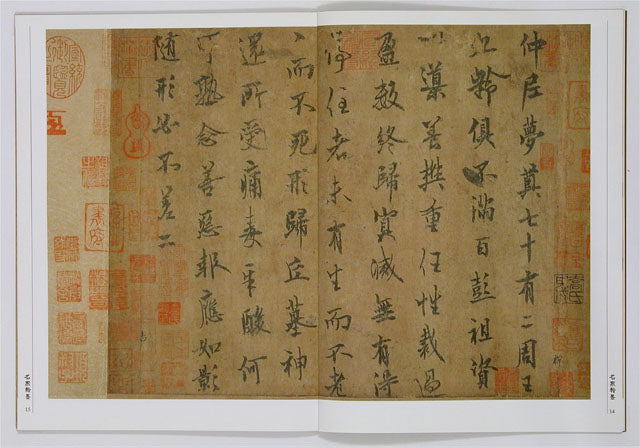 仲尼夢奠七十有二周王
九齡俱不滿百彭祖資
以導養樊重任性裁過
盈數終歸冥滅無有得
停住者未有生而不老
〻而不死形歸丘墓神
還所受痛毒辛酸何
可熟念善惡報應如影
隨形必不差二
14
15